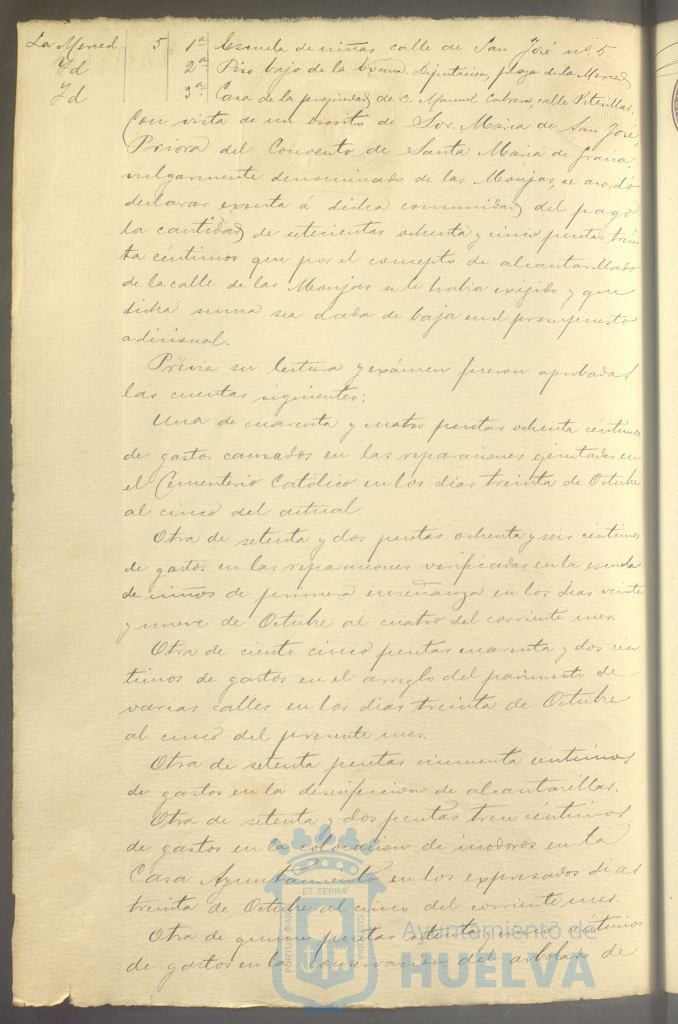 La Merced 5 1ª Escuela de niñas, calle de San José nº 5.
Id 2ª Piso bajo de la Excma. Diputación, plaza de la Merced
Id 3ª Casa de la propiedad de D. Manuel Cabrera, calle Piterillas.
Con vista de un escrito de Sor. Maria de San José
Priora del Convento de Santa Maria de Gracia,
vulgarmente denominado de las Monjas, se acordó
declarar exenta á dicha comunidad del pago
la cantidad de setecientas ochenta y cinco pesetas trein
ta céntimos que por el concepto de alcantarillado
de la calle de las Monjas se le habia exigido y que
dicha suma sea dada de baja en el presupuesto
adicional.
Prévia su lectura y exámen fueron aprobadas
las cuentas siguientes:
Una de cuarenta y cuatro pesetas ochenta céntimos
de gastos causados en las reparaciones ejecutadas en
el Cementerio Católico en los dias treinta de Octubre
al cinco del actual
Otra de setenta y dos pesetas ochenta y seis céntimos
de gastos en las reparaciones verificadas en la escuela
de niños de primera enseñanza en los dias veinte
y nueve de Octubre al cuatro del corriente mes.
Otra de ciento cinco pesetas cuarenta y dos cén
timos de gastos en el arreglo del pavimento de
varias calles en los dias treinta de Octubre
al cinco del presente mes.
Otra de setenta pesetas cincuenta céntimos
de gastos en la desinfeccion de alcantarillas.
Otra de setenta y dos pesetas trece céntimos
de gastos en la colocacion de inodoros en la
Casa Ayuntamiento en los expresados dias
treinta de Octubre al cinco del corriente mes.
Otra de quince pesetas setenta y cinco céntimos
de gastos en la conservacion del arbolado de
PORTUS MARIS
ET TERRÆ
CUSTODIA
Ayuntamiento de
HUELVA